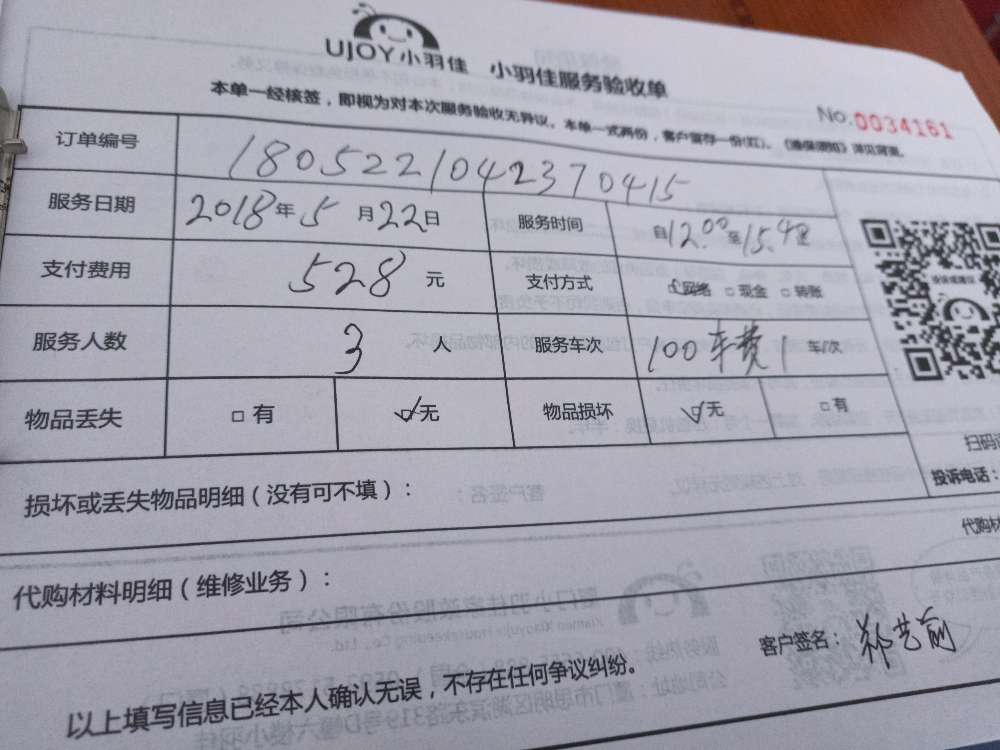 UJOY小羽佳 小羽佳服务验收单
No.0034161
本单一经核签，即视为对本次服务验收无异议。本单一式两份，客户留存一份(红)。《渔保须知》详见背面。
订单编号 180522104237 0415
服务日期 2018年5月22日 服务时间 自12.00至15.48
支付费用 528元 支付方式 ☑网络 □现金 □转账
服务人数 3人 服务车次 100车费1 车/次
物品丢失 □有 ☑无 物品损坏 ☑无 □有
扫码
投诉电话：
损坏或丢失物品明细（没有可不填）：
代购材
代购材料明细（维修业务）：
客户签名：郑艺前
以上填写信息已经本人确认无误，不存在任何争议纠纷。